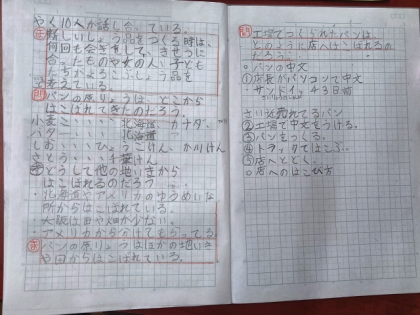 やく10人が話し合っている。
新しいしょう品をつくる時は、
何回も会ぎをして、きせつに
合ったものや女の人、子ども
たちがよろこぶしょう品を
考えている。
問 パンの原りょうは、どこから
はこばれてきたのだろう。
小麦こ・・・・北海道 カナダ、
バター・・・・北海道
しお・・・ひょうごけん、か川けん
さとう・・・千葉けん
どうして他の地いきから
はこばれるのだろう
・北海道やアメリカのゆうめいな
所からはこばれている。
・大阪は田や畑が少ない。
・アメリカから分けてもらってる
パンの原りょうはほかの地いき
や国からはこばれている。
問 工場でつくられたパンは、
どのように店へはこばれるの
だろう。
○パンの中文
①店長がパソコンで中文
・サンドイッチ3日前
さい近売れてるパン
②工場で中文をうける。
③パンをつくる。
④トラックではこぶ。
⑤店へとどく。
○店へのはこび方